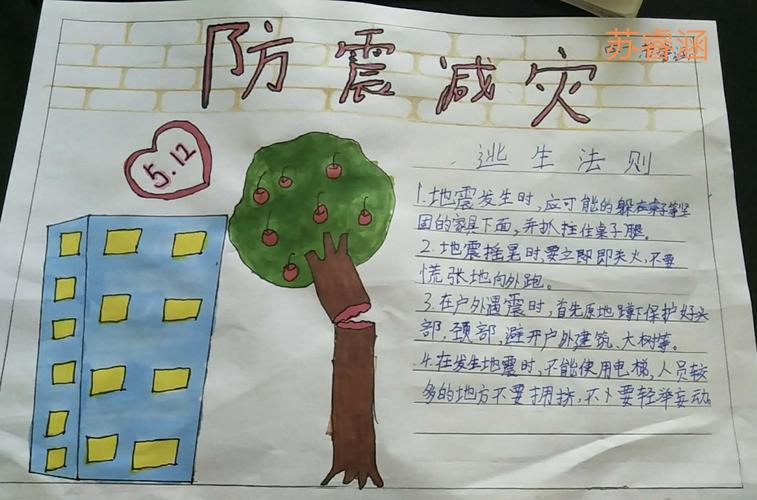 防震减灾
苏睿涵
5.12
逃生法则
1.地震发生时,应可能的躲在桌子等坚
固的家具下面,并扒拄住桌子腿。
2.地震摇晃时,要立即即关火,不要
慌张地向外跑。
3.在户外遇震时,首先原地蹲下保护好头
部,颈部,避开户外建筑、大树等。
4.在发生地震时,不能使用电梯,人员较
多的地方不要拥挤,不要轻举妄动